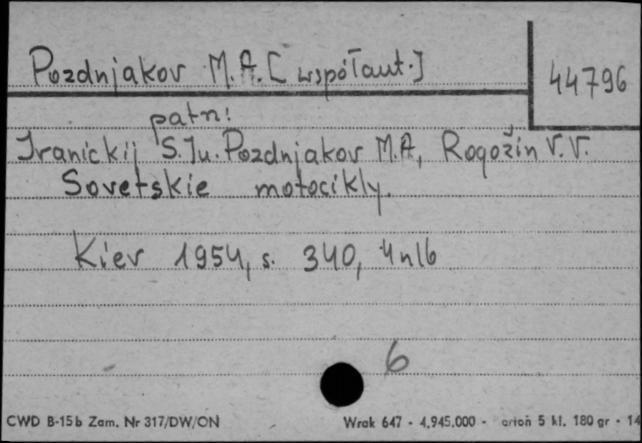 Pozdnjakov M.A. [współaut.]
44796
patrz:
Ivanickij S.Ju. Pozdnjakov M.A, Rogožin V.V.
Sovetskie motocikly.
Kiev 1954, s. 340, 4 nlb
6
CWD B-15b Zam. Nr 317/DW/ON Wrak 647 - 4.945.000 - 5 kl. 180 gr - 14